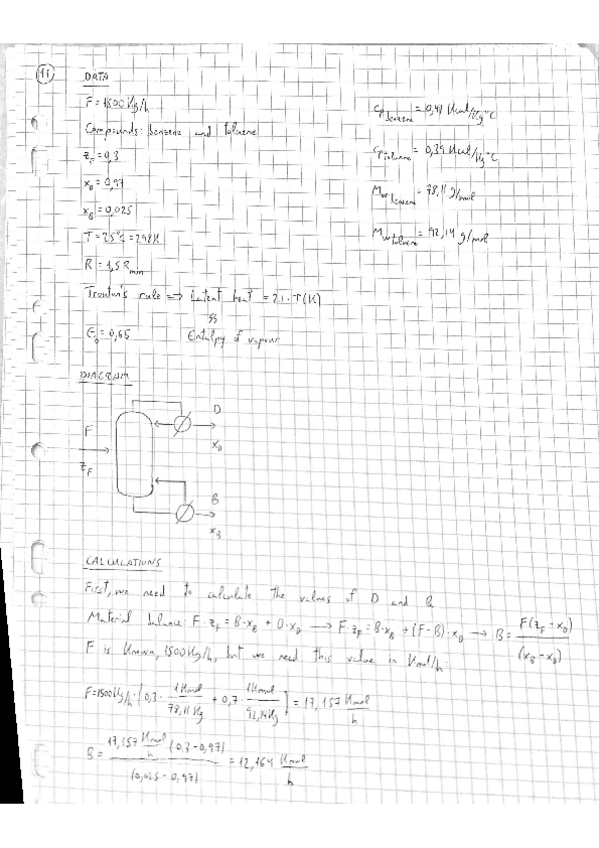 11
DATA
F = 1500 Kg/h
Compounds: benzene and toluene
z_F = 0,3
x_D = 0,97
x_B = 0,025
T = 25 °C = 298 K
R = 1,5 R_min
Trouton's rule => Latent heat = 21 · T(K)
Enthalpy of vapour
E_0 = 0,65
cp_benzene = 0,41 Kcal/Kg °C
cp_toluene = 0,39 Kcal/Kg °C
Mw_benzene = 78,11 g/mol
Mw_toluene = 92,14 g/mol
DIAGRAM
F
z_F
D
x_D
B
x_B
CALCULATIONS
First, we need to calculate the values of D and B
Material balance: F · z_F = B · x_B + D · x_D → F · z_F = B · x_B + (F - B) · x_D → B = F(z_F - x_D) / (x_B - x_D)
F is known, 1500 Kg/h, but we need this value in Kmol/h.
F = 1500 Kg/h · [0,3 · 1 Kmol / 78,11 Kg + 0,7 · 1 Kmol / 92,14 Kg] = 17,157 Kmol / h
B = 17,157 Kmol / h (0,3 - 0,97) / (0,025 - 0,97) = 12,164 Kmol / h